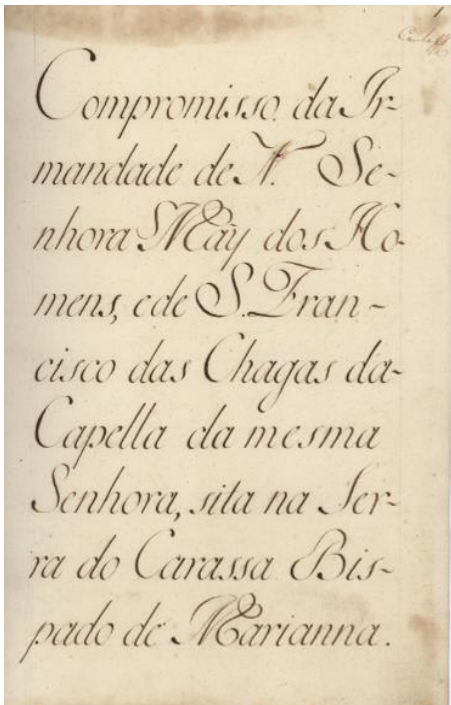 1
Compromisso da Ir-
mandade de N. Se-
nhora Mãy dos Ho-
mens, e de S. Fran-
cisco das Chagas da
Capella da mesma
Senhora, sita na Ser-
ra do Carassa Bis-
pado de Marianna.